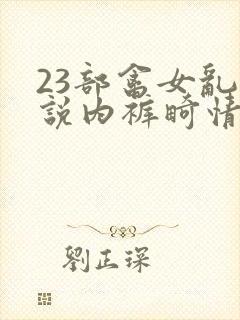 23部畜女亂
說内裤畸情
劉正琛